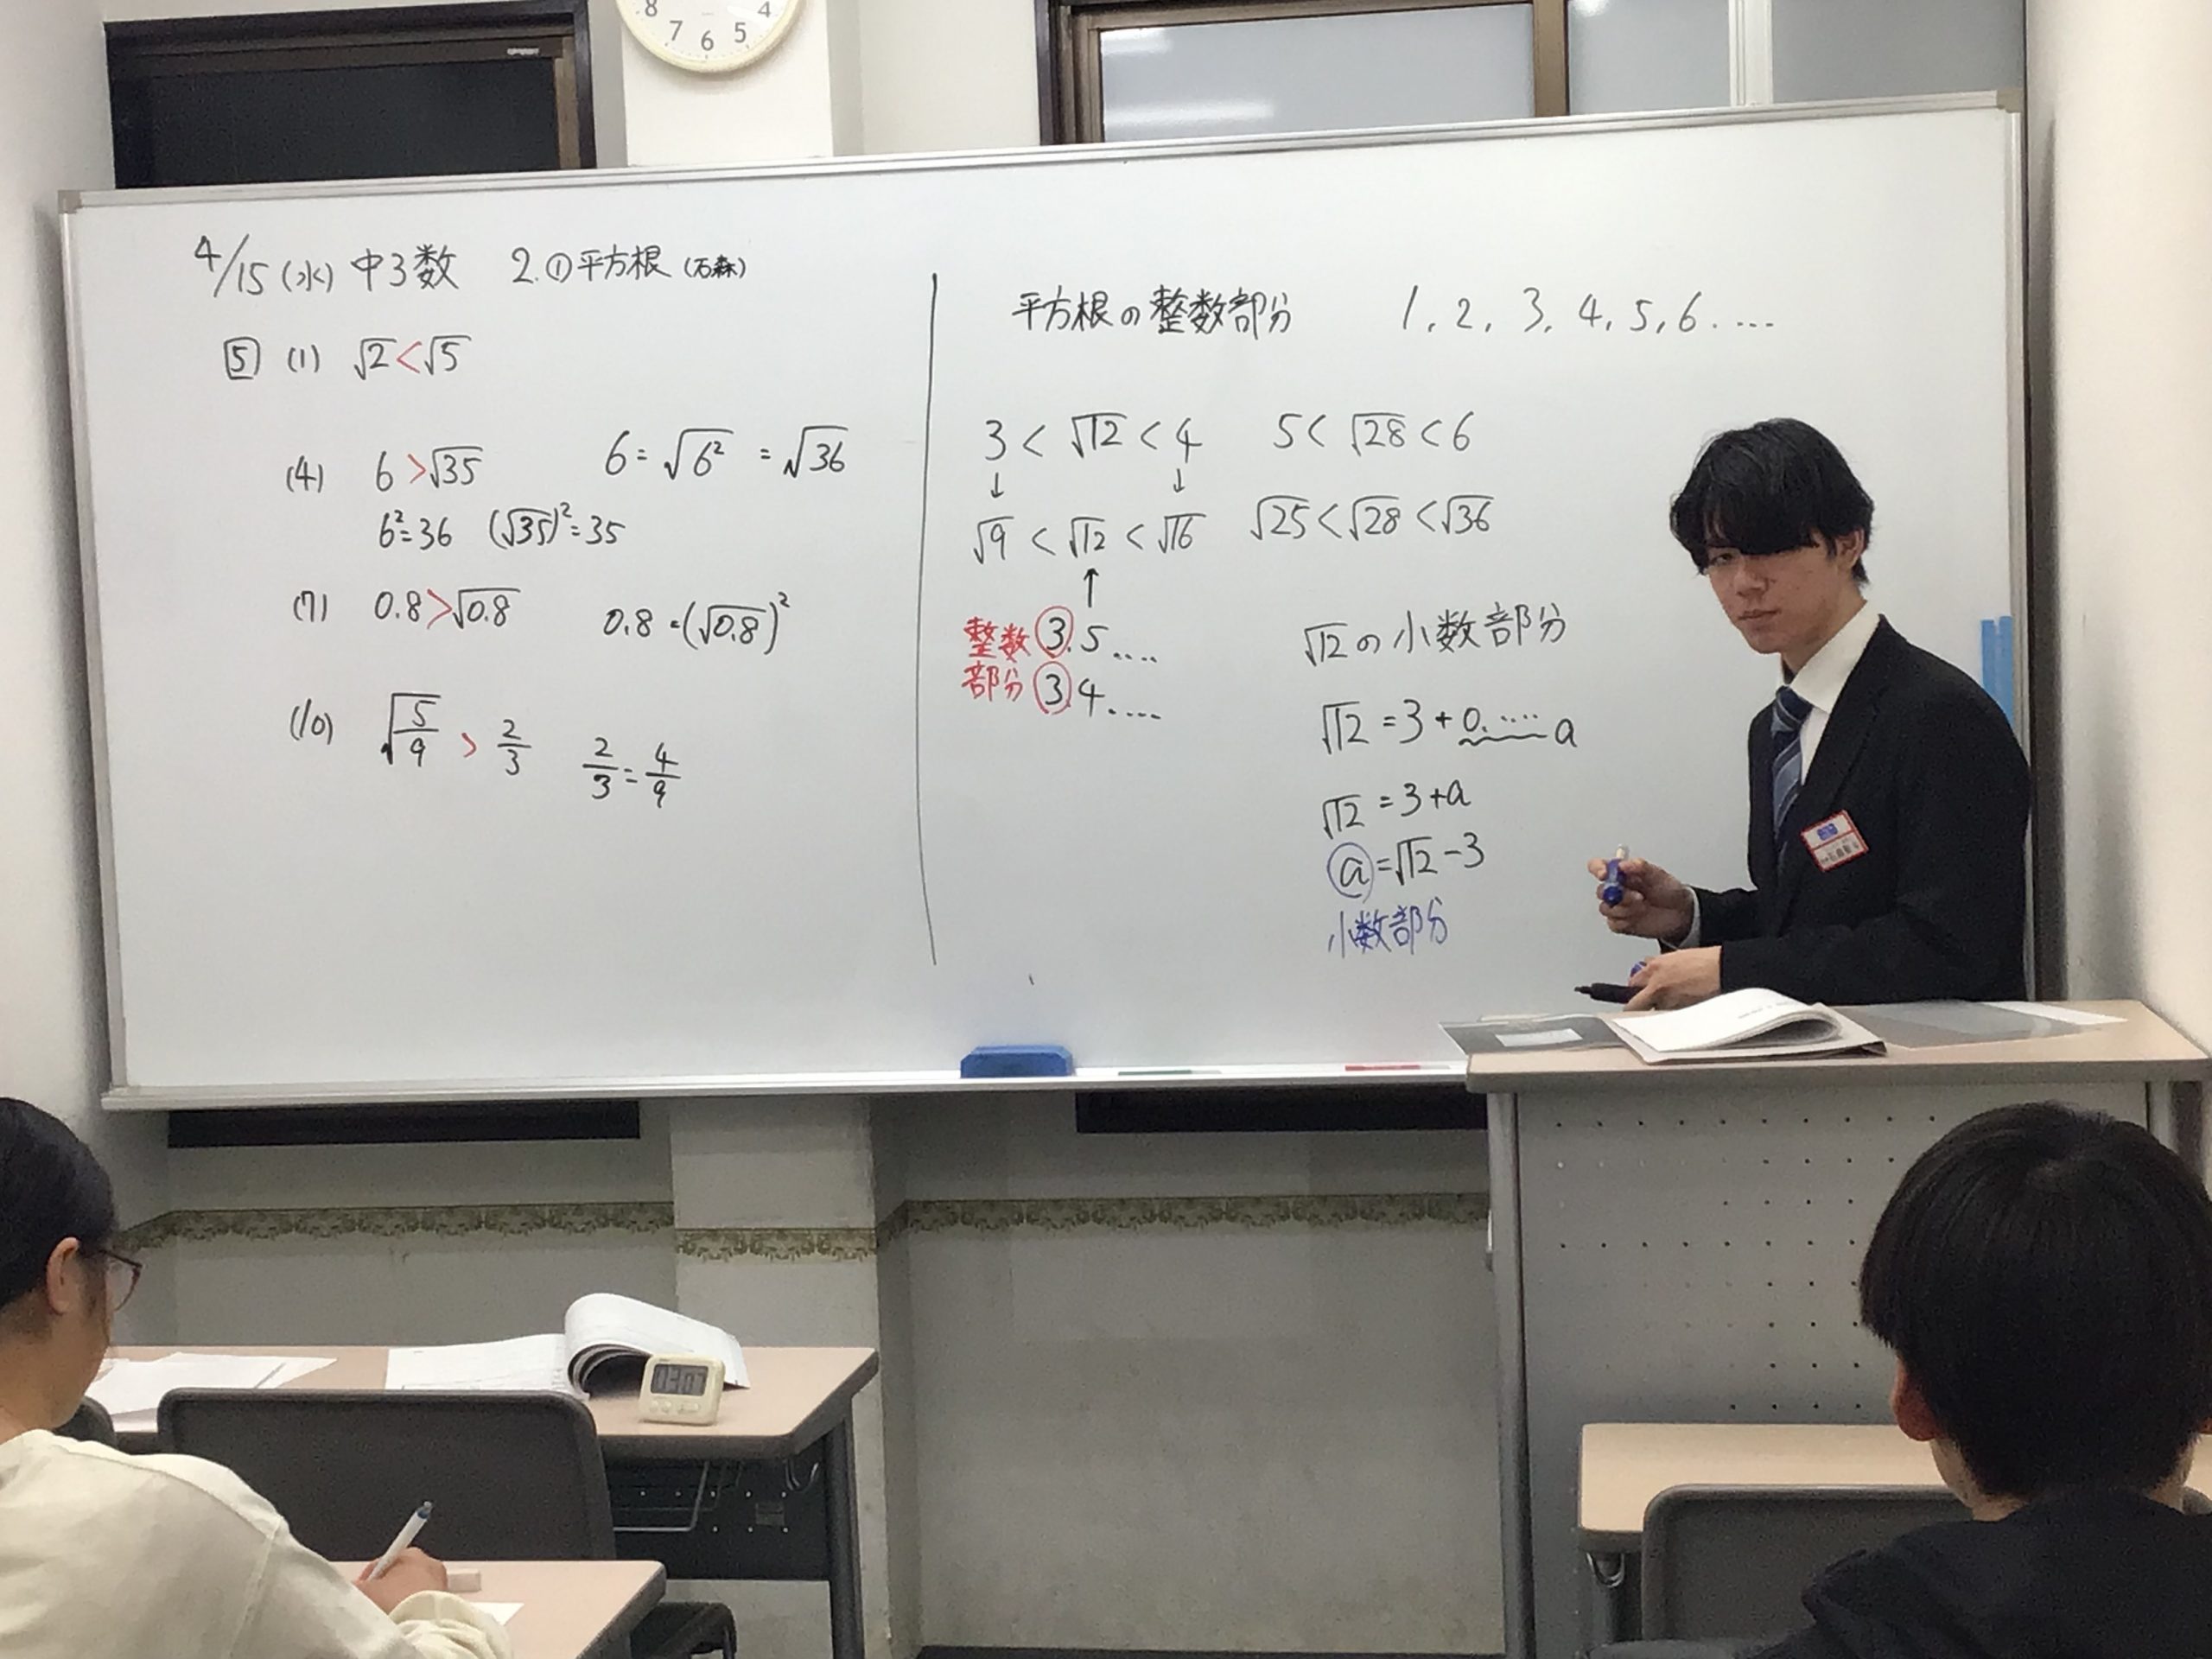 8 7 6 5 4
4/15(水) 中3数 2.①平方根(石森)
5 (1) √2<√5
(4) 6>√35 6=√6² =√36
6²=36 (√35)²=35
(7) 0.8>√0.8 0.8=(√0.8)²
(10) √5/9 > 2/3 2/3=4/9
平方根の整数部分 1, 2, 3, 4, 5, 6. ....
3 < √12 < 4 5<√28<6
↓ ↓
√9 < √12 < √16 √25<√28<√36
↑
整数 3.5....
部分 3.4....
√12の小数部分
√12=3+0.....a
√12=3+a
a=√12-3
小数部分